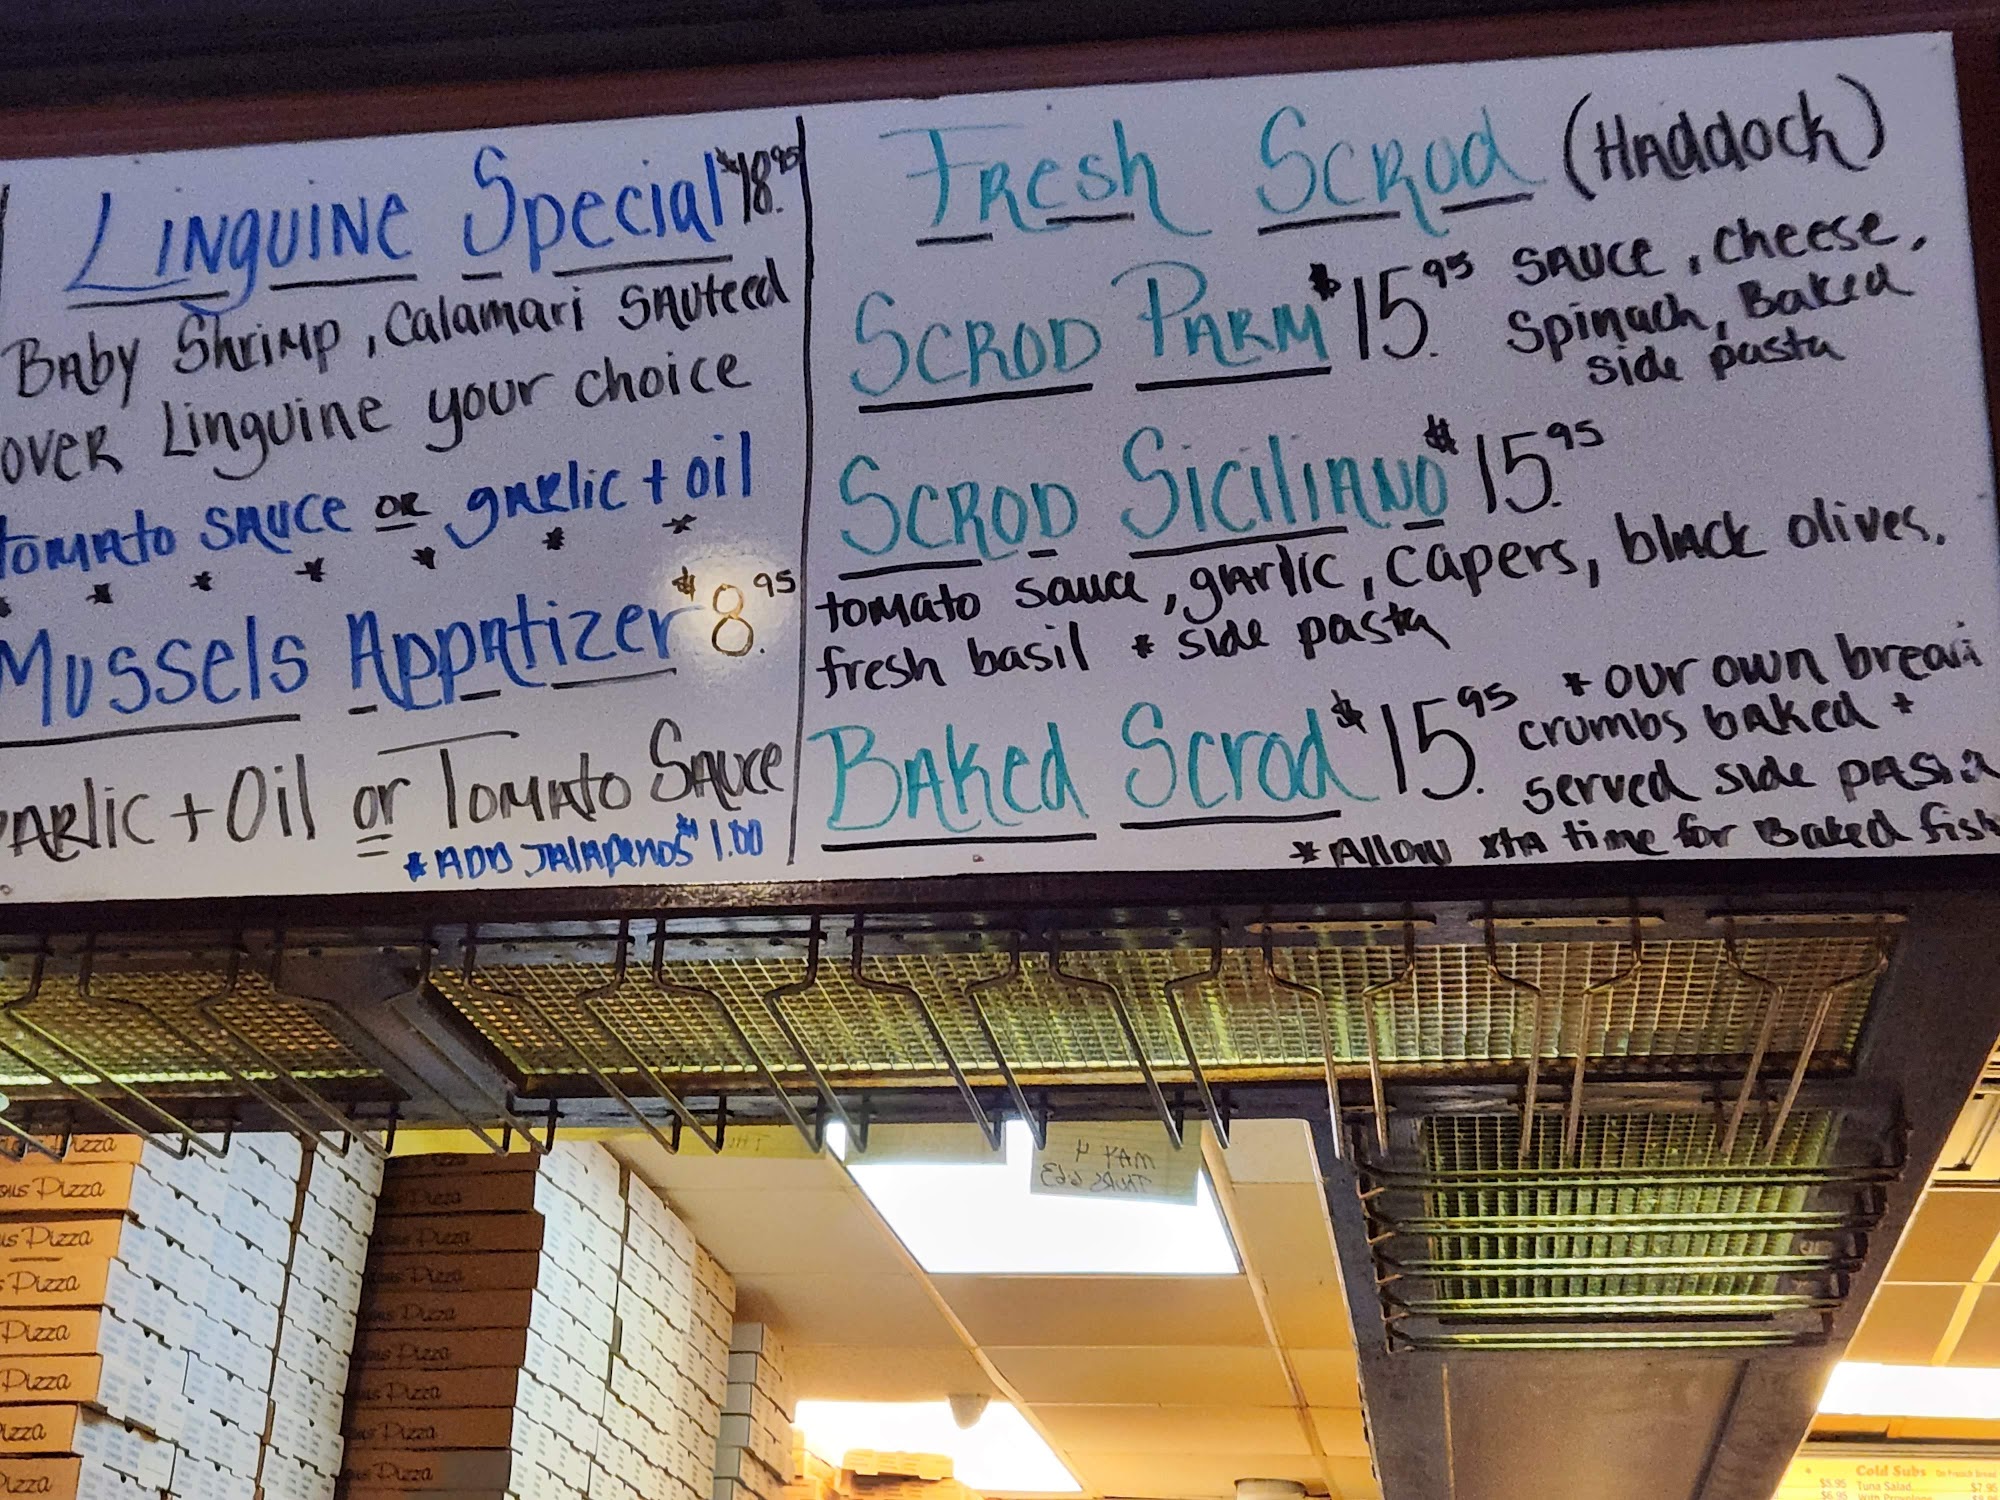 Linguine Special $18.95
Baby Shrimp, Calamari Sauteed
over Linguine your choice
tomato sauce or garlic + oil
* * * * * *
Mussels Appatizer $8.95
arlic + Oil or Tomato Sauce
* ADD Jalapenos $1.00
Fresh Scrod (Haddock)
Scrod Parm $15.95 sauce, cheese,
Spinach, Baked
side pasta
Scrod Siciliano $15.95
tomato sauce, garlic, capers, black olives,
fresh basil * side pasta
Baked Scrod $15.95 * our own bread
crumbs baked +
served side pasta
* Allow xtra time for Baked fish
MAY 4
THURS
izza
ous Pizza
us Pizza
s Pizza
Pizza
Pizza
izza
izza
Pizza
Pizza
Pizza
Pizza
Pizza
Pizza
Pizza
Pizza
Pizza
Cold Subs
$5.95 Tuna Salad $7.95
$6.95 With Provolone